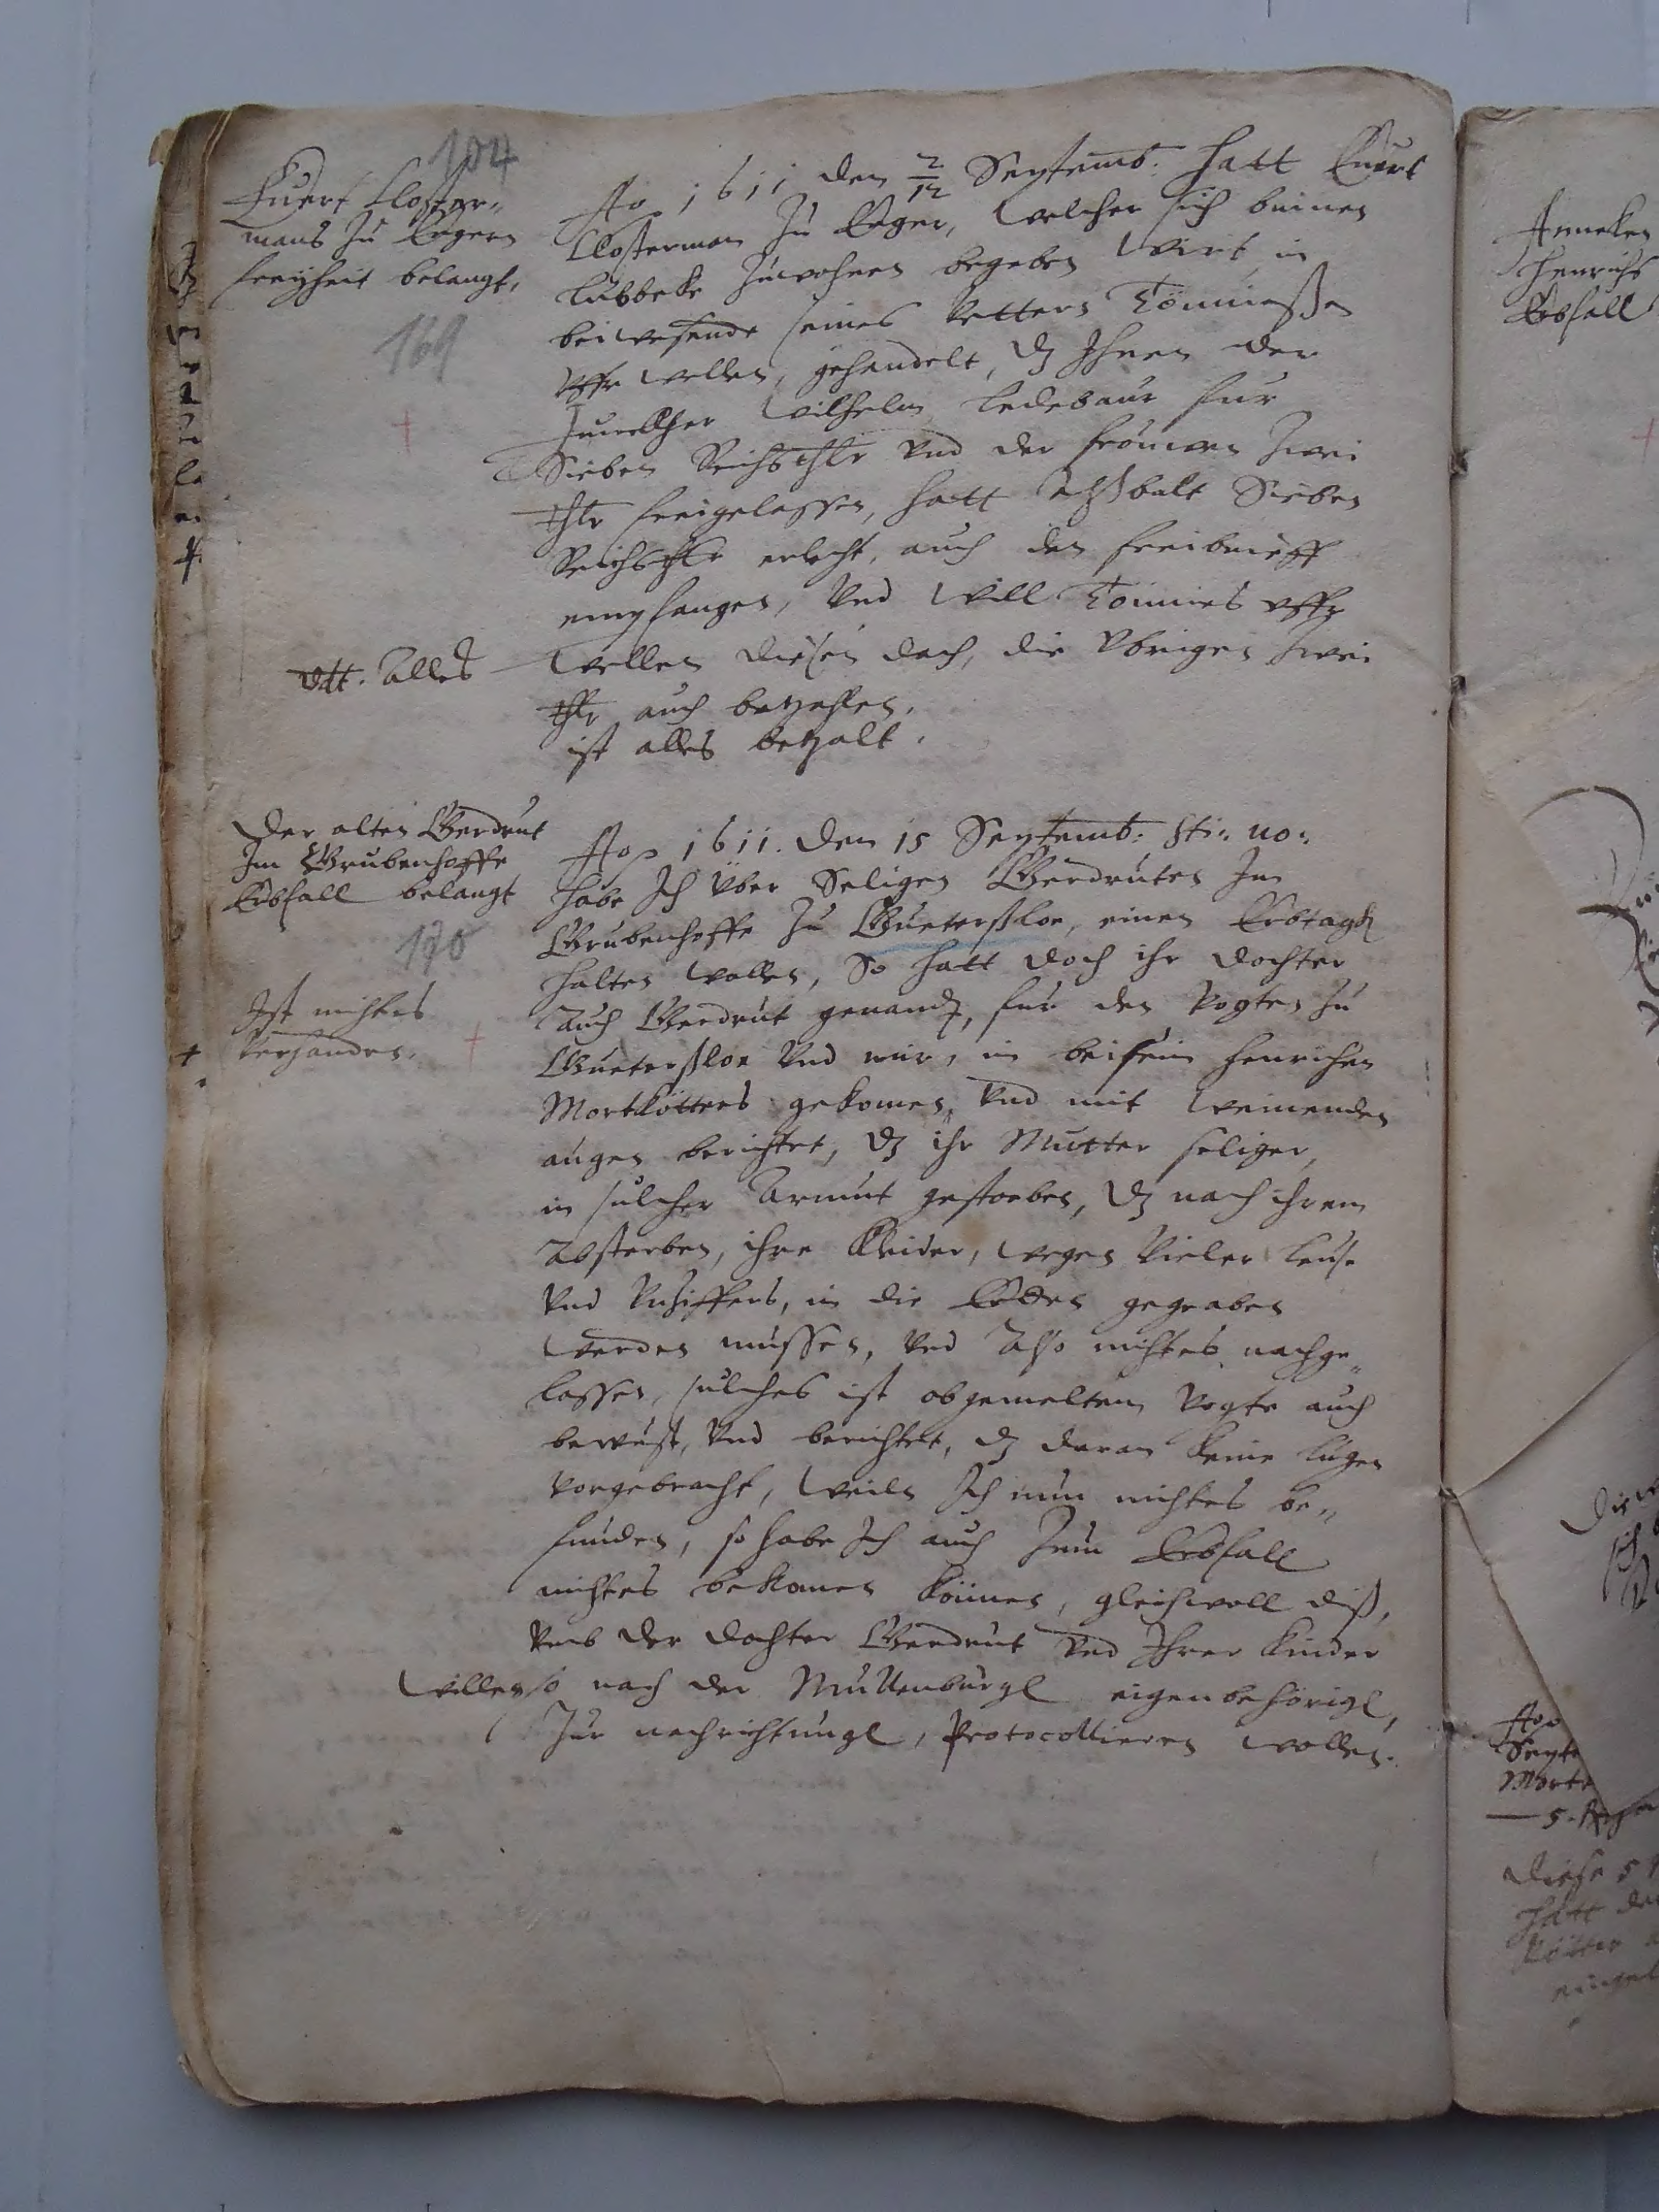 104
Euert Closter-
mans zu Engern
freyheit belangt,
169
Ao 1611 den 2/12 Septemb: hatt Euert
Closterman zu Enger, welcher sich binnen
Lubbeke zuwohnen begeben wirt, in
beiwesende seines Vetters Tönnießen
uffr wellen, gehandelt, dz Ihnen der
Juncker Wilhelm Ledebaur fur
Sieben Reichsthlr und der frouwen zwei
thlr freigelassen, hatt alßbalt Sieben
Reichsthlr erlecht, auch den freibrieff
empfangen, Und will Tonnies uffr
vdt. alles
wellen diesen dach, die ubrigen zwei
thlr auch betzahlen,
ist alles betzalt.
Der alten Gerdrut
Im Grubenhoffe
Erbfall belangt
170
Ist nichtes
verhanden.
Ao 1611. den 15 Septemb: sti: no:
habe Ich uber Seligen Gerdruten Im
Grubenhoffe zu Guterßloe, einen Erbtagh
halten wollen, So hatt doch ihr dochter
auch Gerdrut genand, fur den Vogten zu
Gueterßloe und mir, in beisein Henrichen
Mortkötters gekomen, und mit weinenden
augen berichtet, dz ihr Mutter seliger,
in sulcher Armut gestorben, dz nach ihrem
Absterben, ihre Kleider, wegen vieler leuse
und, in die Erden gegraben
werden mussen, und Also nichtes nachge„
lassen, sulches ist obgemeltem Vogte auch
bewust, und berichtet, dz daran keine lugen
vorgebracht, weiln Ich nun nichtes be„
funden, so habe Ich auch zum Erbfall
nichtes bekomen können, gleichwoll diß,
umb der dochter Gerdrut und Ihrer kinder
willen so nach der Mullenburgk eigenbehörigk,
zur nachrichtungk, Protocollieren wollen.
Anneken
Henrichs
Erbfall
Ao
Septe
Morte
5.
Diese 5
hatt de
kötter